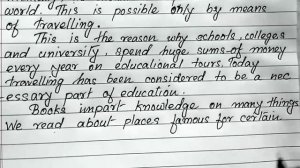 world. This is possible only by means
of travelling.
This is the reason why schools, colleges
and university, spend huge sums of money
every year on educational tours. Today
travelling has been considered to be a nec
-essary part of education.
Books impart knowledge on many things
We read about places famous for certain